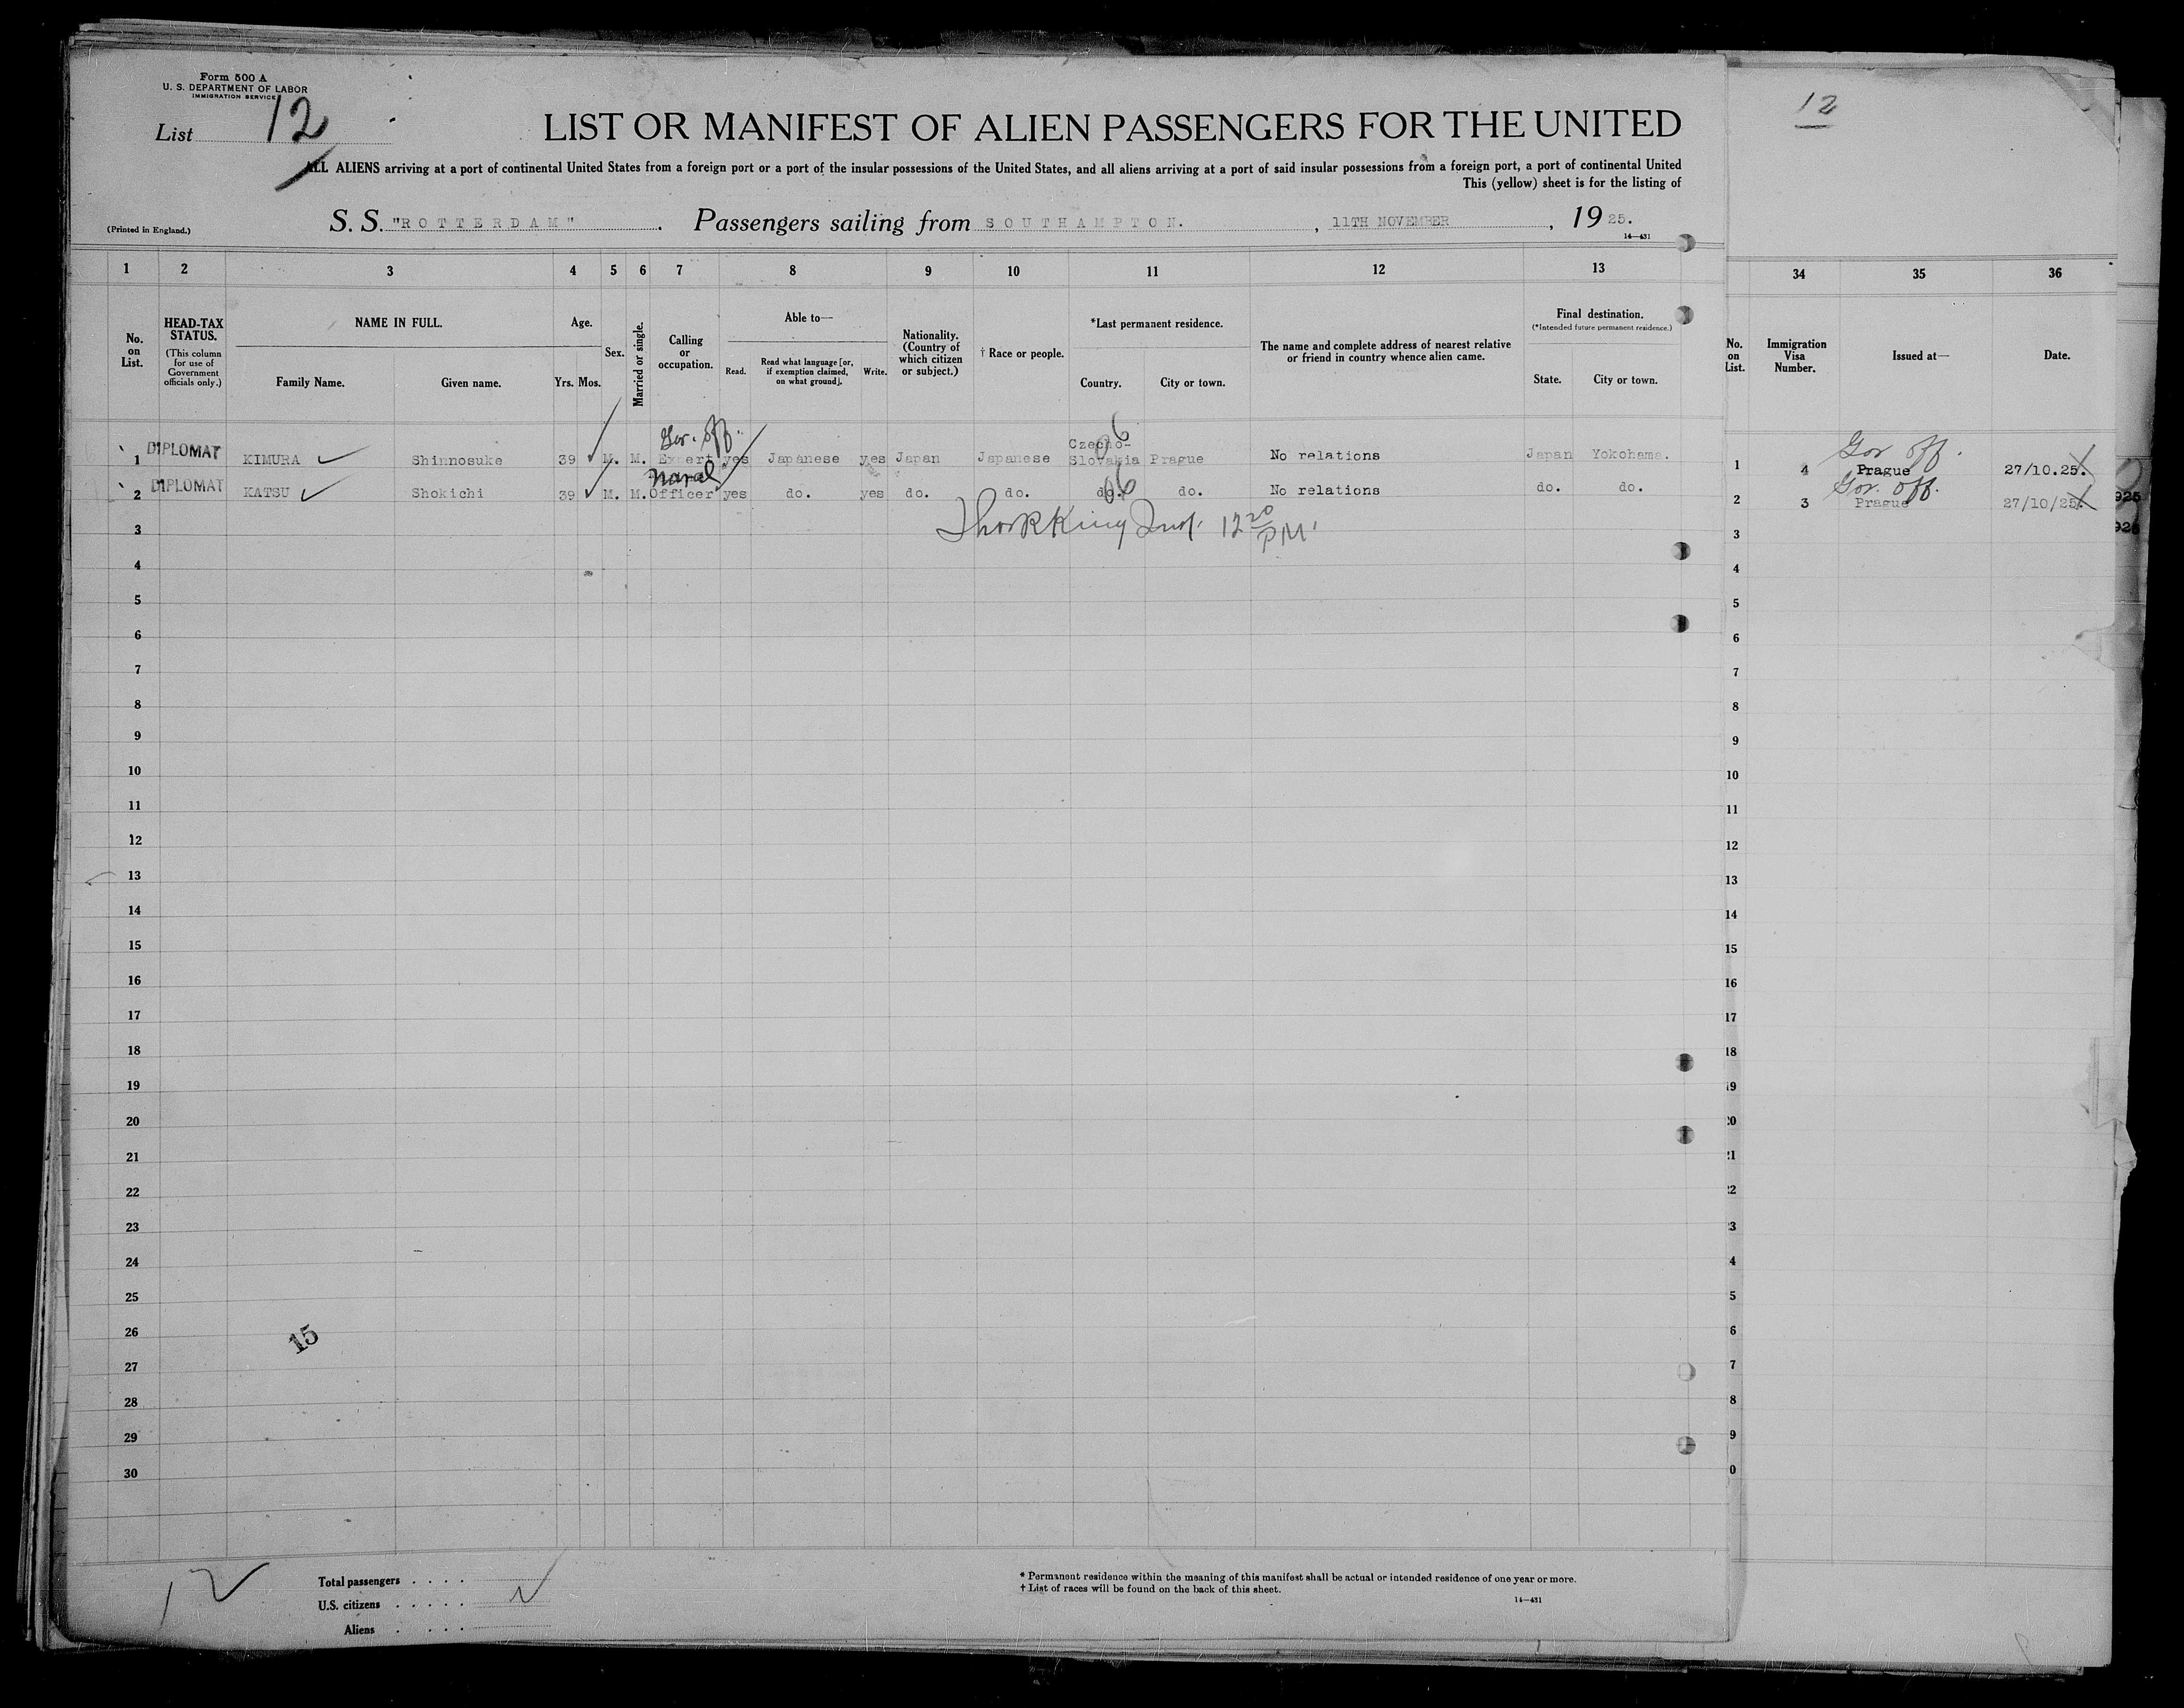 Form 500 A
U. S. DEPARTMENT OF LABOR
IMMIGRATION SERVICE
List 12
LIST OR MANIFEST OF ALIEN PASSENGERS FOR THE UNITED
ALL ALIENS arriving at a port of continental United States from a foreign port or a port of the insular possessions of the United States, and all aliens arriving at a port of said insular possessions from a foreign port, a port of continental United
This (yellow) sheet is for the listing of
(Printed in England.)
S. S. "ROTTERDAM". Passengers sailing from SOUTHAMPTON. , 11TH NOVEMBER , 19 25.
14—431
12
1 2 3 4 5 6 7 8 9 10 11 12 13
34 35 36
No. on List.
HEAD-TAX STATUS.
(This column for use of Government officials only.)
NAME IN FULL.
Family Name. Given name.
Age.
Yrs. Mos.
Sex.
Married or single.
Calling or occupation.
Able to—
Read. Read what language [or, if exemption claimed, on what ground]. Write.
Nationality. (Country of which citizen or subject.)
† Race or people.
*Last permanent residence.
Country. City or town.
The name and complete address of nearest relative or friend in country whence alien came.
Final destination.
(*Intended future permanent residence.)
State. City or town.
No. on List.
Immigration Visa Number.
Issued at—
Date.
Gov. off.
1 DIPLOMAT KIMURA Shinnosuke 39 M. M. Expert yes Japanese yes Japan Japanese Czecho-Slovakia Prague No relations Japan Yokohama.
6
1 4 Gov off. Prague 27/10.25.
Naval
2 DIPLOMAT KATSU Shokichi 39 M. M. Officer yes do. yes do. do. do. do. No relations do. do.
6
2 3 Gov. off. Prague 27/10/25.
925
925
12 20 PM
3
4
5
6
7
8
9
10
11
12
13
14
15
16
17
18
19
20
21
22
23
24
25
26
27
28
29
30
3
4
5
6
7
8
9
10
11
12
13
14
15
16
17
18
19
20
21
22
23
4
5
6
7
8
9
0
15
12
Total passengers . . . .
U.S. citizens . . . . .
Aliens . . . .
* Permanent residence within the meaning of this manifest shall be actual or intended residence of one year or more.
† List of races will be found on the back of this sheet.
14—431